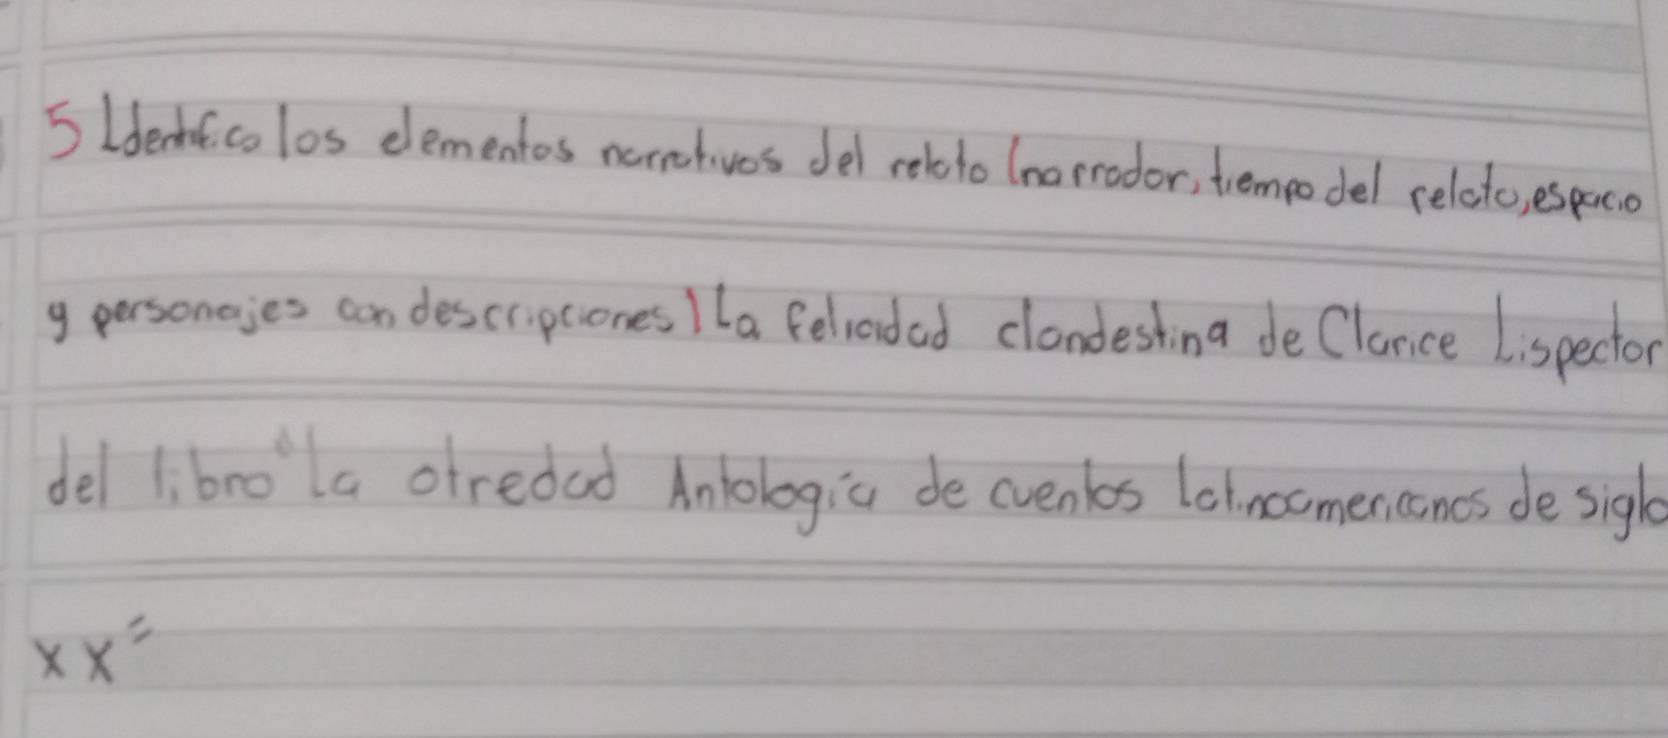 5 Identifico los elementos narrativos del relato (narrador, tiempo del relato, espacio
y personajes con descripciones) La felicidad clandestina de Clarice Lispector
del libro "La otredad Antología de cuentos latinoamericanos de siglo
XX"